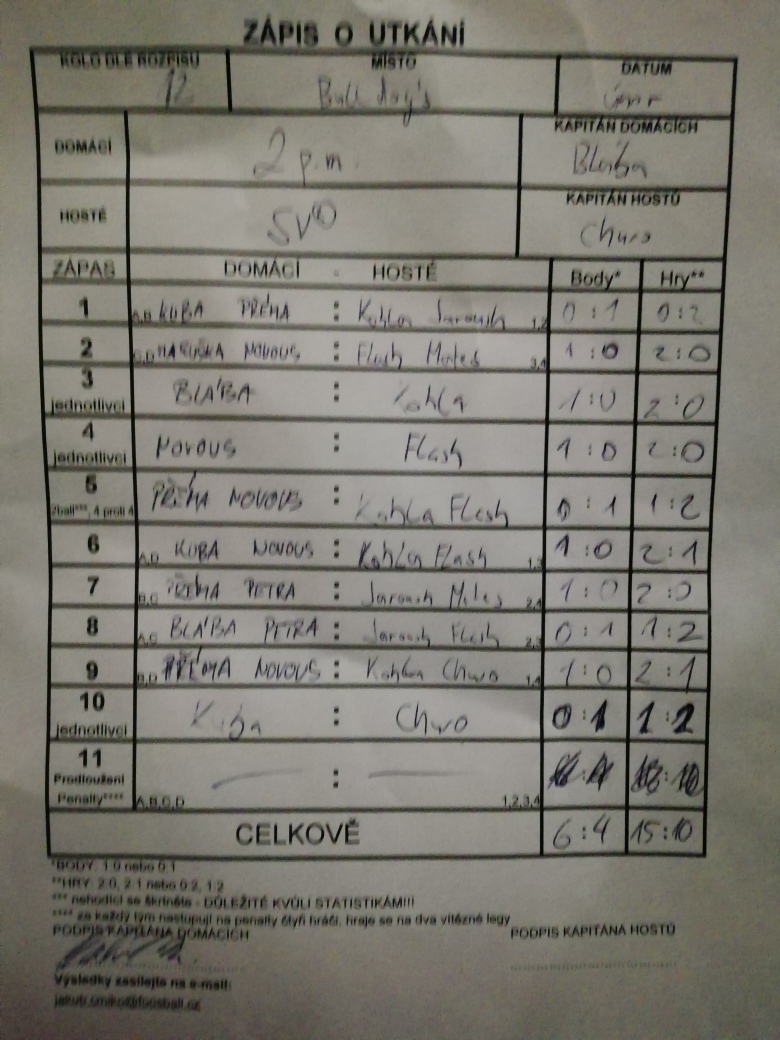 ZÁPIS O UTKÁNÍ
KOLO DLE ROZPISU MÍSTO DATUM
12 Bull dog's
DOMÁCÍ 2 p.m. KAPITÁN DOMÁCÍCH
Blába
HOSTÉ SVO KAPITÁN HOSTŮ
Chwo
ZÁPAS DOMÁCÍ - HOSTÉ Body* Hry**
1 A,B KUBA PŘÉMA : Kohla Jaroush 1,2 0:1 0:2
2 C,D MARUŠKA NOVOUS : Flash Mates 3,4 1:0 2:0
3 jednotlivci BLÁBA : Kohla 1:0 2:0
4 jednotlivci NOVOUS : Flash 1:0 2:0
5 2ball***, 4 proti 4 PŘÉMA NOVOUS : Kohla Flash 0:1 1:2
6 A,D KUBA NOVOUS : Kohla Flash 1,3 1:0 2:1
7 B,C PŘÉMA PETRA : Jaroush Mates 2,4 1:0 2:0
8 A,C BLÁBA PETRA : Jaroush Flash 2,3 0:1 1:2
9 B,D PŘÉMA NOVOUS : Kohla Chwo 1,4 1:0 2:1
10 jednotlivci Kuba : Chwo 0:1 1:2
11 Prodloužení Penalty**** A,B,C,D : 1,2,3,4
CELKOVĚ 6:4 15:10
*BODY: 1:0 nebo 0:1
**HRY: 2:0, 2:1 nebo 0:2, 1:2
*** nehodící se škrtněte - DŮLEŽITÉ KVŮLI STATISTIKÁM!!!
**** za každý tým nastupují na penalty čtyři hráči, hraje se na dva vítězné legy
PODPIS KAPITÁNA DOMÁCÍCH PODPIS KAPITÁNA HOSTŮ
Výsledky zasílejte na e-mail:
jakub.smiko@foosball.cz